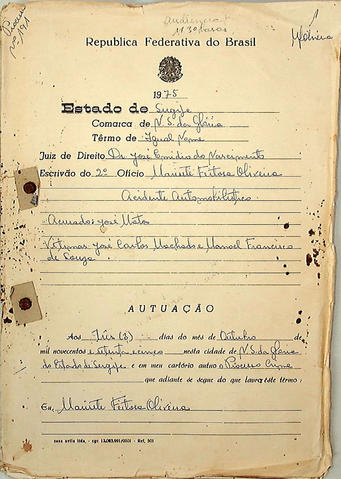 Audiencia
11 30 horas
Republica Federativa do Brasil
1975
Estado de Sergipe
Comarca de N. S. da Glória
Têrmo de Igual Nome
Juiz de Direito Dr José Emidio do Nascimento
Escrivão do 2º Oficio Marizete Feitosa Oliveira
Acidente Automobilístico
Acusado: José Matos
Vítimas: José Carlos Machado e Manoel Francisco
de Souza
AUTUAÇÃO
Aos Três (3) dias do mês de Outubro
de mil novecentos e setenta e cinco nesta cidade de N. S. da Glória
do Estado de Sergipe e em meu cartório autuo o Processo Crime
que adiante se segue do que lavro este têrmo:
Eu, Marizete Feitosa Oliveira